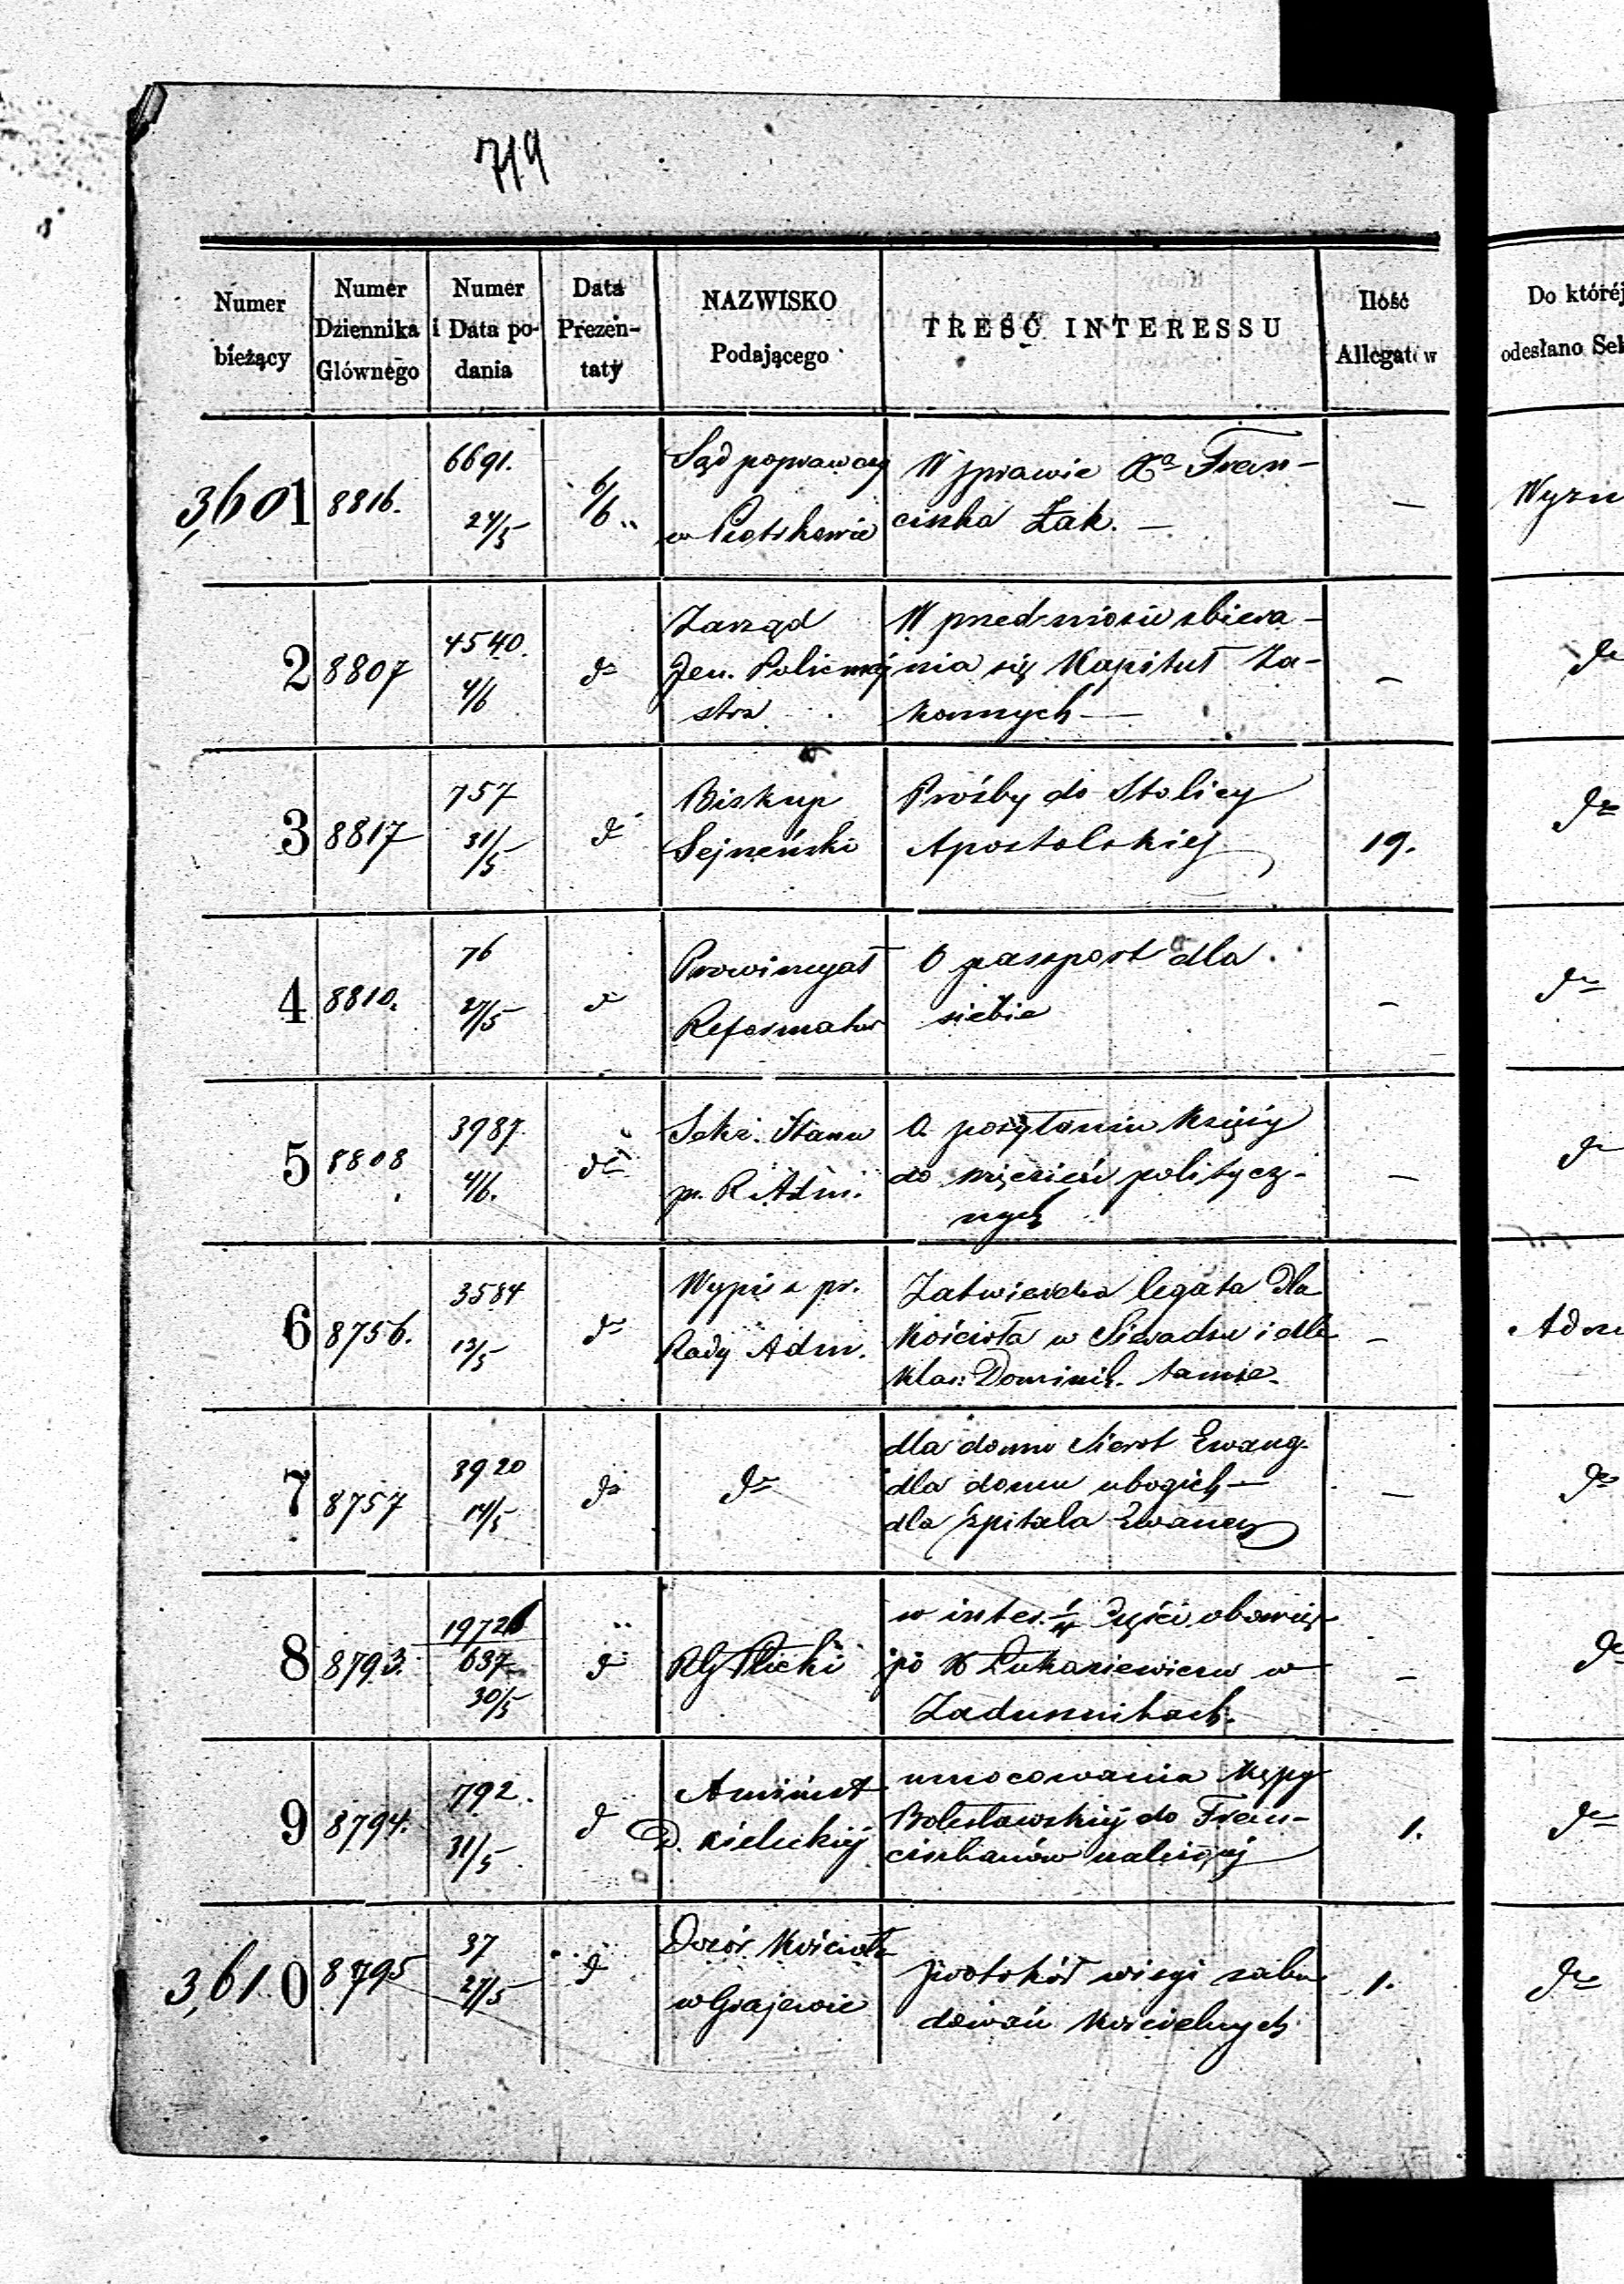 719
Numer bieżący
Numer Dziennika Głównego
Numer i Data podania
Data Prezentaty
NAZWISKO Podającego
TREŚĆ INTERESSU
Ilość Allegatów
Do któréj
odesłano Sek
3,601 8816. 6691. 24/5 6/6
Sąd poprawczy
w Piotrkowie
W sprawie Xa Fran-
ciszka Żak. —
—
2 8807 4540. 4/6 do
Zarząd
Jen. Policmaj
stra
W przedmiocie zbiera-
nia się Kapituł Za-
konnych —
—
do
3 8817 757 31/5 do
Biskup
Sejneński
Prośby do Stolicy
Apostolskiej
19.
do
4 8810. 76 27/5 do
Prowincyał
Reformator
O passport dla
siebie
—
do
5 8808 3987. 4/6. do
Sekr. Stanu
p. R. Adm.
O posyłaniu Księży
do więzień politycz-
nych
—
do
6 8756. 3584 13/5 do
Wypis z pr.
Rady Adm.
Zatwierdza legata dla
Kościoła w Sieradzu i dla
klas: Dominik. tamże.
—
7 8757 3920 14/5 do
do
dla domu Sierot Ewang.
dla domu ubogich —
dla szpitala Ewang
—
do
8 8793. 637 30/5 do
w inter. 1/4 części
po X Łukasiewiczu w
Zadusznikach.
—
do
9 8794. 792. 31/5 d
D. Kieleckiej
umocowania Kępy
Bolesławskiej do Fran-
ciszkanów należącej
1.
do
3,610 8795 37 27/5 d
Dozór Kościoła
w Grajewie
protokół wizyi zabu
dowań Kościelnych
1.
do